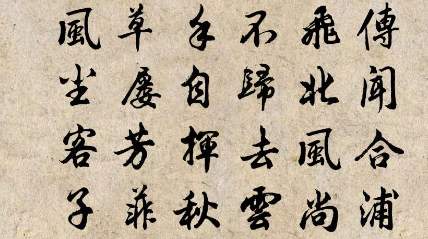 傳聞合浦
飛北風尚
不歸去雲
手自揮秋
草屡芳菲
風尘客子